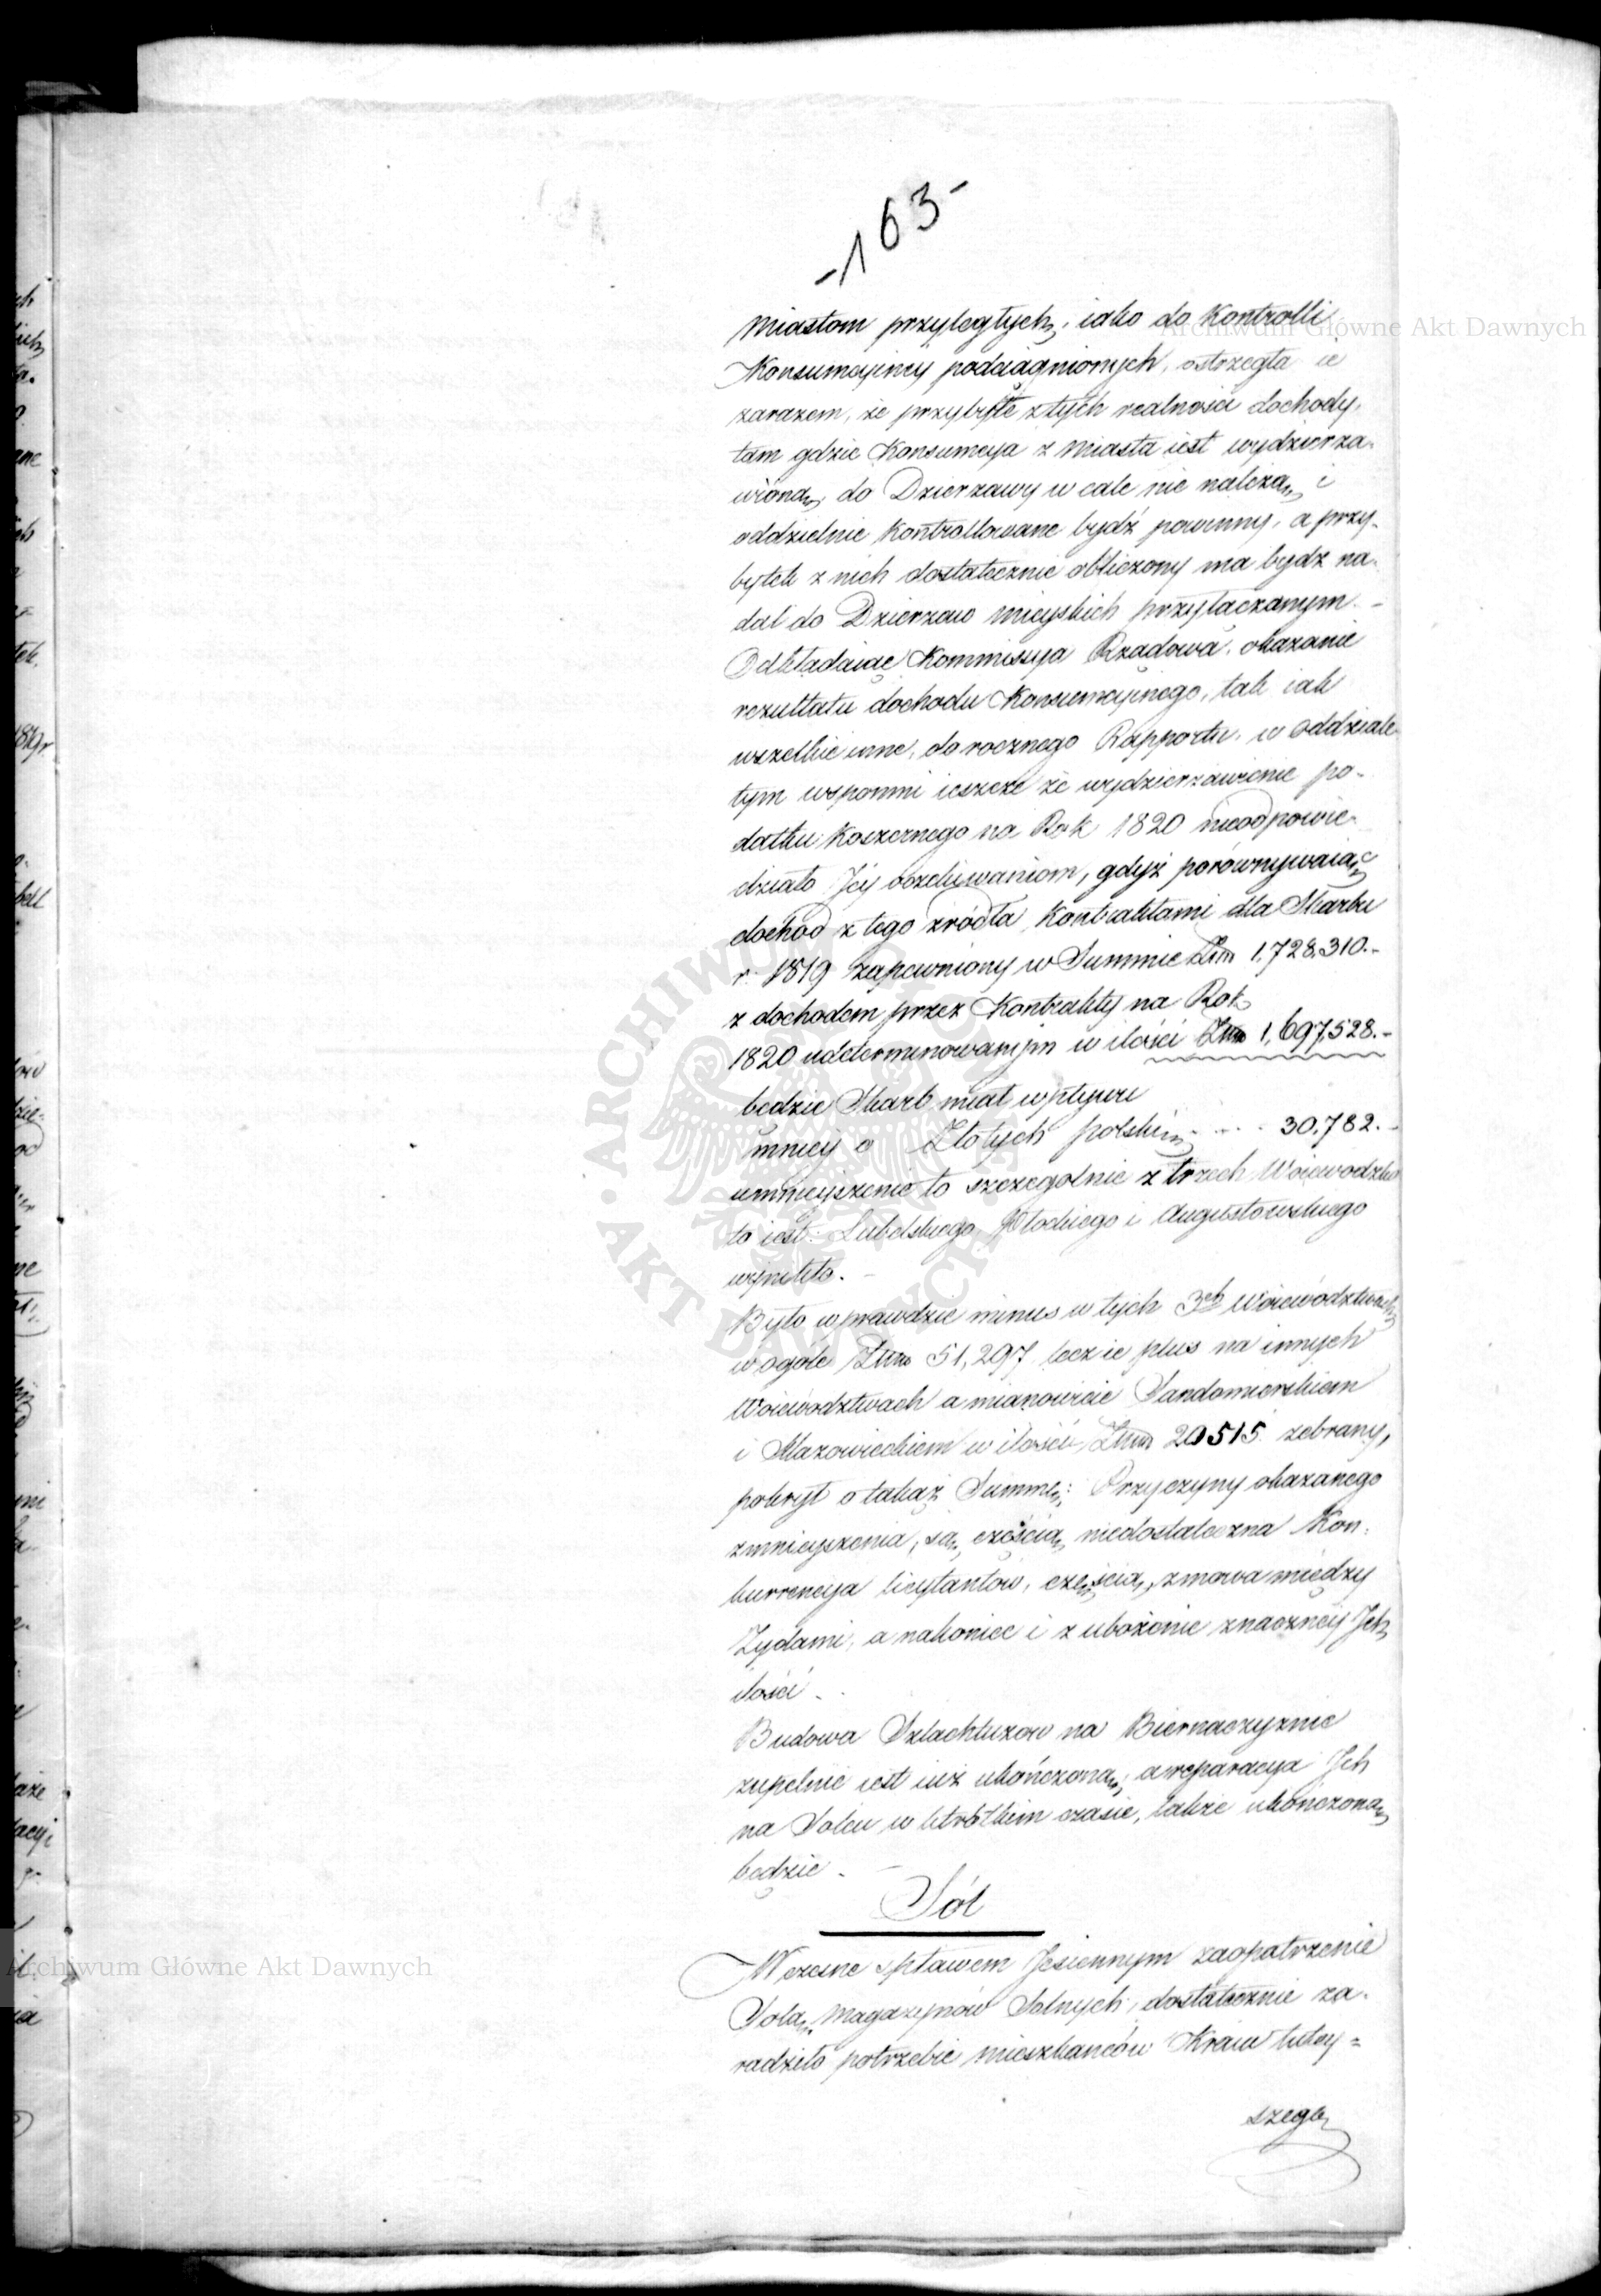 -163-
Miastom przyległych, iako do Kontrolli
Konsumcyiney podciągnionych, ostrzegła ie
zarazem, że przybyłe z tych realności dochody,
tam gdzie Konsumcya z Miasta iest wydzierza-
wioną, do Dzierzawy w cale nie należą, i
oddzielnie Kontrollowane bydź powinny, a przy-
bytek z nich dostatecznie obliczony ma bydź na-
dal do Dzierzaw Mieyskich przyłączanym.-
Odkładaiąc Kommissya Rządowa, okazanie
rezultatu dochodu Konsumcyinego, tak iak
wszelkie inne, do rocznego Rapportu, w oddziale
tym wspomni ieszcze że wydzierżawienie po-
datku Koszernego na Rok 1820 nieodpowie-
działo Jéy oczekiwaniom, gdyż porównywaiąc
dochod z tego zródła Kontraktami dla Skarbu
r. 1819 zapewniony w Summie Złm 1,728,310.-
z dochodem przez Kontrakty na Rok
1820 udeterminowanym w ilości Złm 1,697,528.-
będzie Skarb miał wpływu
mniéy o Złotych polskich - - - 30,782.-
umnieyszenie to szczegolnie z trzech Woiewodztw
to iest: Lubelskiego Płockiego i Augustowskiego
wynikło.-
Było wprawdzie minus w tych 3ch Woiewództwach
w ogóle Złm 51,297 lecz ie plus na innych
Woiewodztwach a mianowicie Sandomierskiem
i Mazowieckiem w ilości Złm 20515 zebrany,
pokrył o takąż Summę: Przyczyny okazanego
zmnieyszenia, są, częścią, niedostateczna Kon-
kurrencya licytantów, częścią, zmowa między
Żydami, a nakoniec i zubożenie znacznéy Jch
ilości.-
Budowa Szlachtuzow na Biernaczyznie
zupełnie iest iuż ukończoną, a reparacya Jch
na Solcu w krótkim czasie, także ukończoną
będzie.-
Sól
Wczesne spławem Jesiennym zaopatrzenie
Solą, Magazynów Solnych, dostatecznie za-
radziło potrzebie mieszkańców Kraiu tutey=
szego
Archiwum Główne Akt Dawnych
Archiwum Główne Akt Dawnych